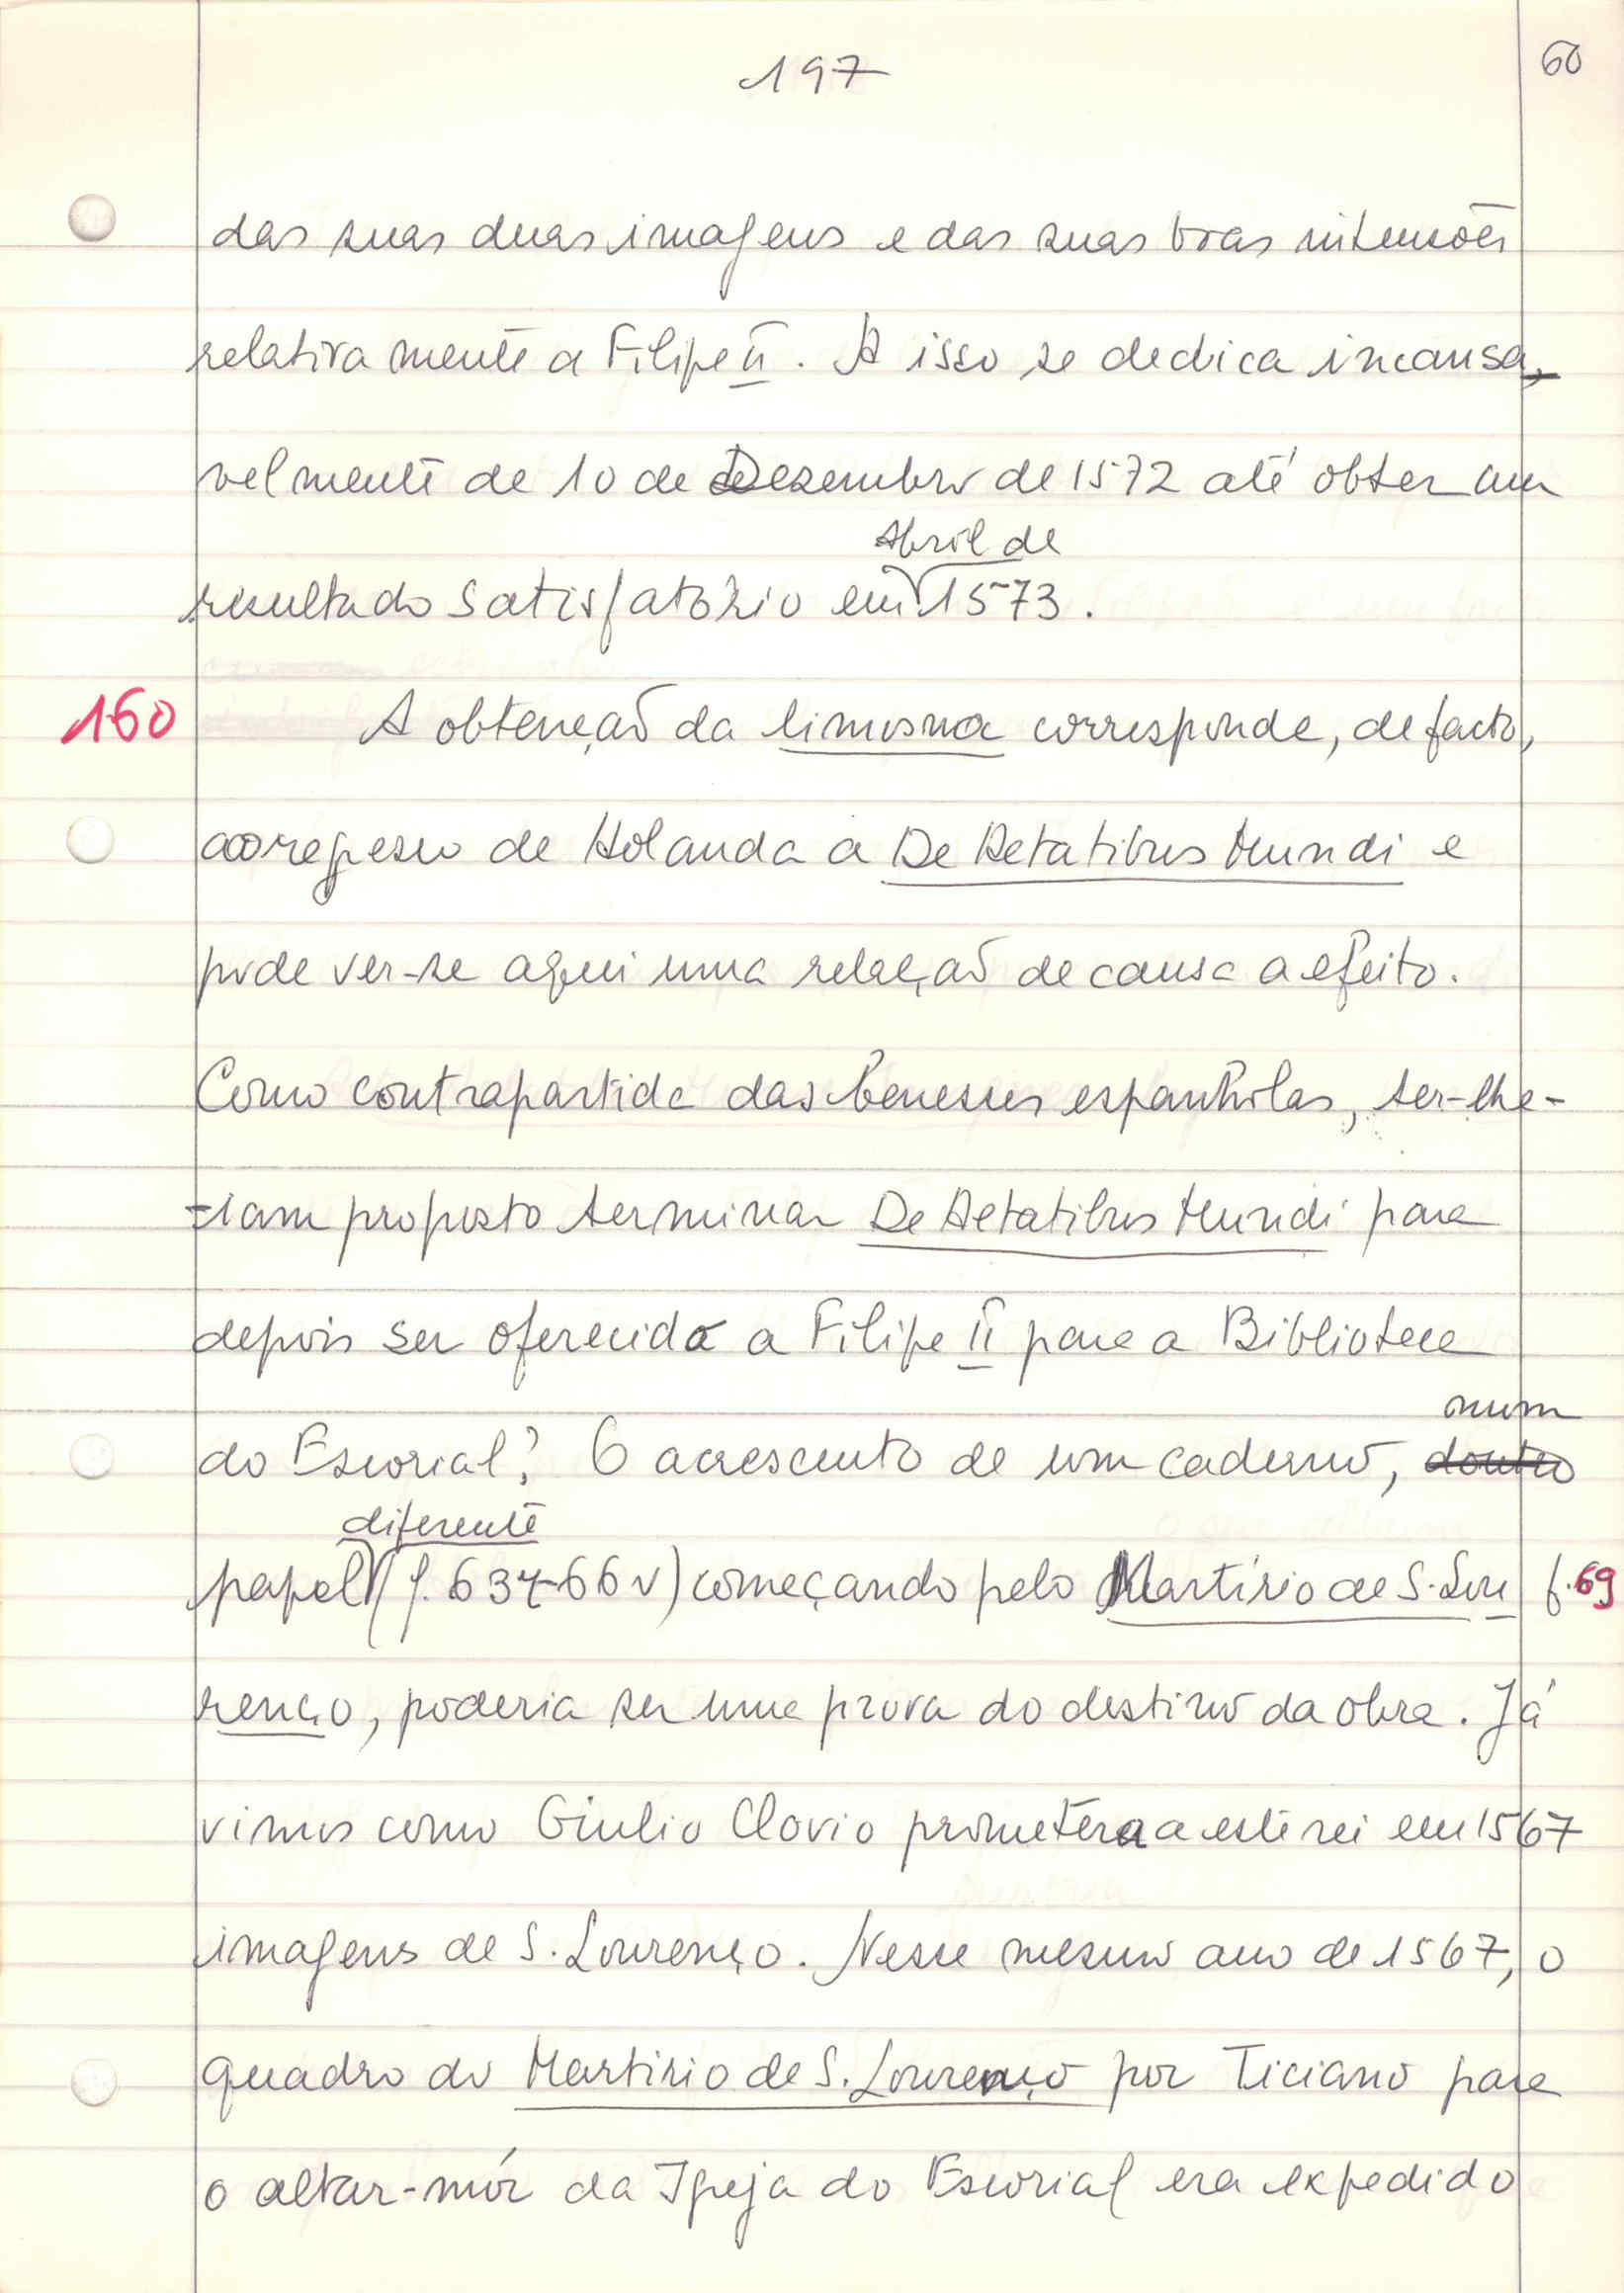 197
60
das suas duas imagens e das suas boas intensões
relativamente a Filipe II. A isso se dedica incansa-
velmente de 10 de Dezembro de 1572 até obter um
Abril de
resultado satisfatório em 1573.
160
A obtenção da limosna corresponde, de facto,
ao regresso de Holanda a De Aetatibus Mundi e
pode ver-se aqui uma relação de causa a efeito.
Como contrapartida das benesses espanholas, ter-lhe-
-iam proposto terminar De Aetatibus Mundi para
depois ser oferecida a Filipe II para a Biblioteca
num
do Escorial? O acrescento de um caderno, doutro
diferente
papel (f. 63r-66v) começando pelo Martírio de S. Lou
f. 69
renço, poderia ser uma prova do destino da obra. Já
vimos como Giulio Clovio prometera a este rei em 1567
imagens de S. Lourenço. Nesse mesmo ano de 1567, o
quadro do Martirio de S. Lourenço por Ticiano para
o altar-mór da Igreja do Escorial era expedido